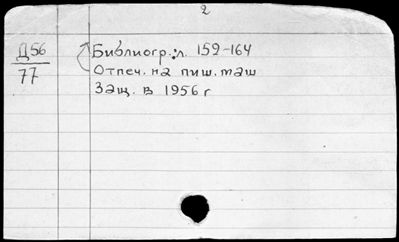 2
Д56
77
Библиогр.: л. 159-164
Отпеч. на пиш. маш
Защ. в 1956 г